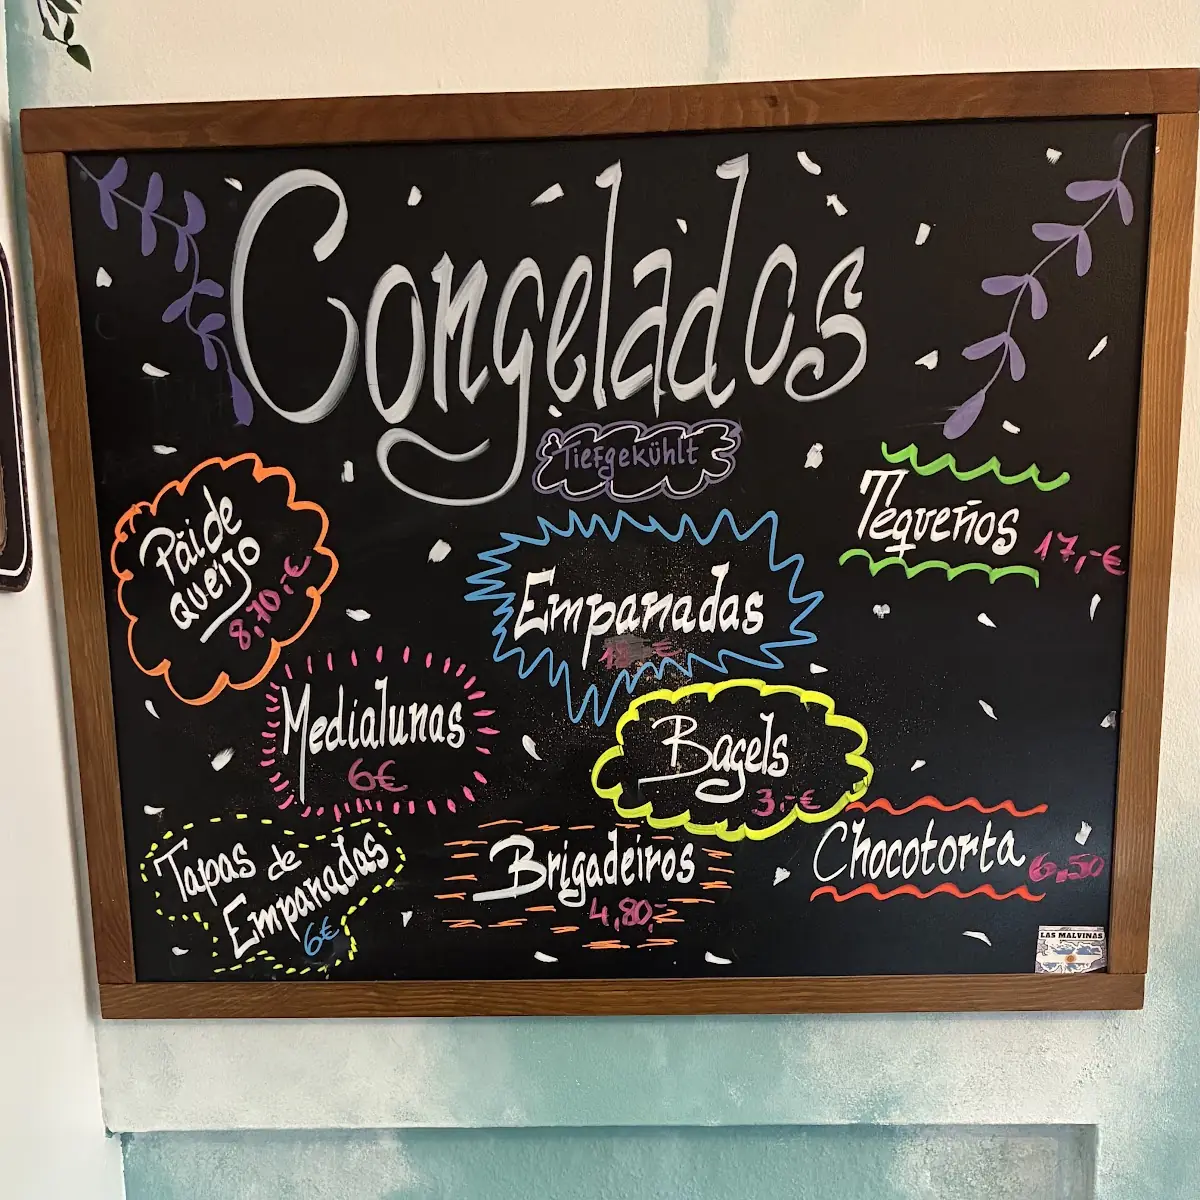 Congelados
Tiefgekühlt
Pãi de
queijo
8,70,-€
Tequeños 17,-€
Empanadas
Medialunas
6€
Bagels
3,-€
Tapas de
Empanadas
6€
Brigadeiros
4,80,-
Chocotorta 6,50
LAS MALVINAS